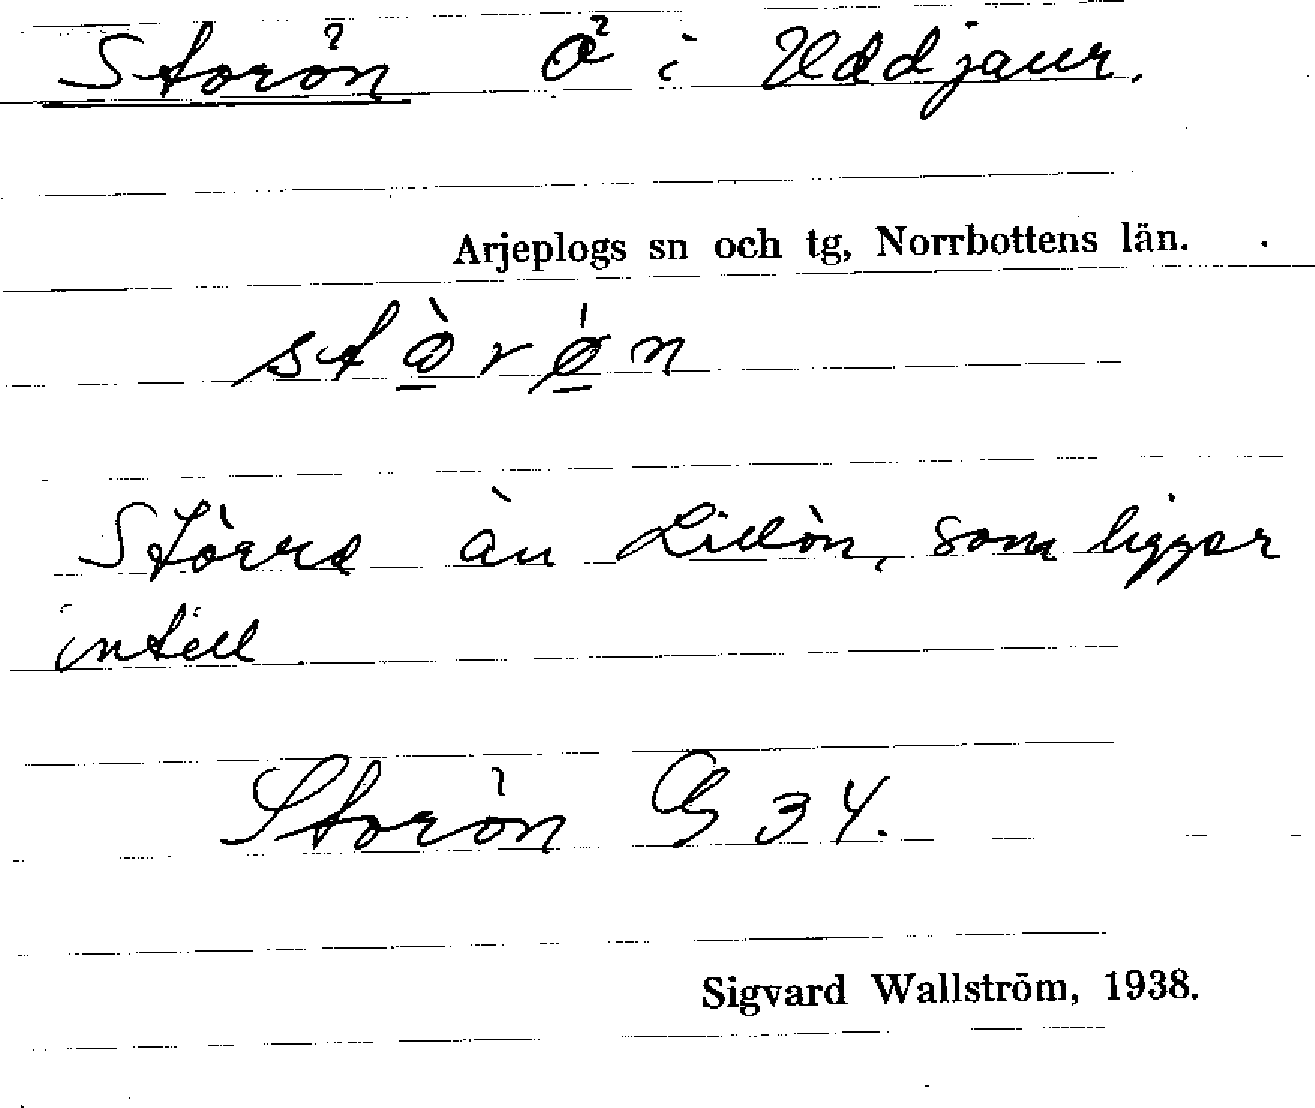 Storön Ö i Uddjaur.
Arjeplogs sn och tg, Norrbottens län.
stò̲rǿ̲n
Större än Lillön, som ligger
intill
Storön G 34.
Sigvard Wallström, 1938.